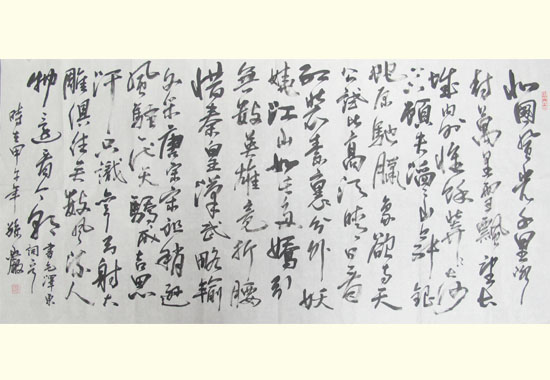 北國風光千里冰
封萬里雪飄望長
城內外惟餘莽莽大河
上下頓失滔滔山舞銀
蛇原馳臘象欲與天
公試比高須晴日看
紅裝素裹分外妖
嬈江山如此多嬌引
無數英雄競折腰
惜秦皇漢武略輸
文采唐宗宋祖稍遜
風騷一代天驕成吉思
汗只識彎弓射大
雕俱往矣數風流人
物還看今朝
書毛澤東
詞
時在甲午年